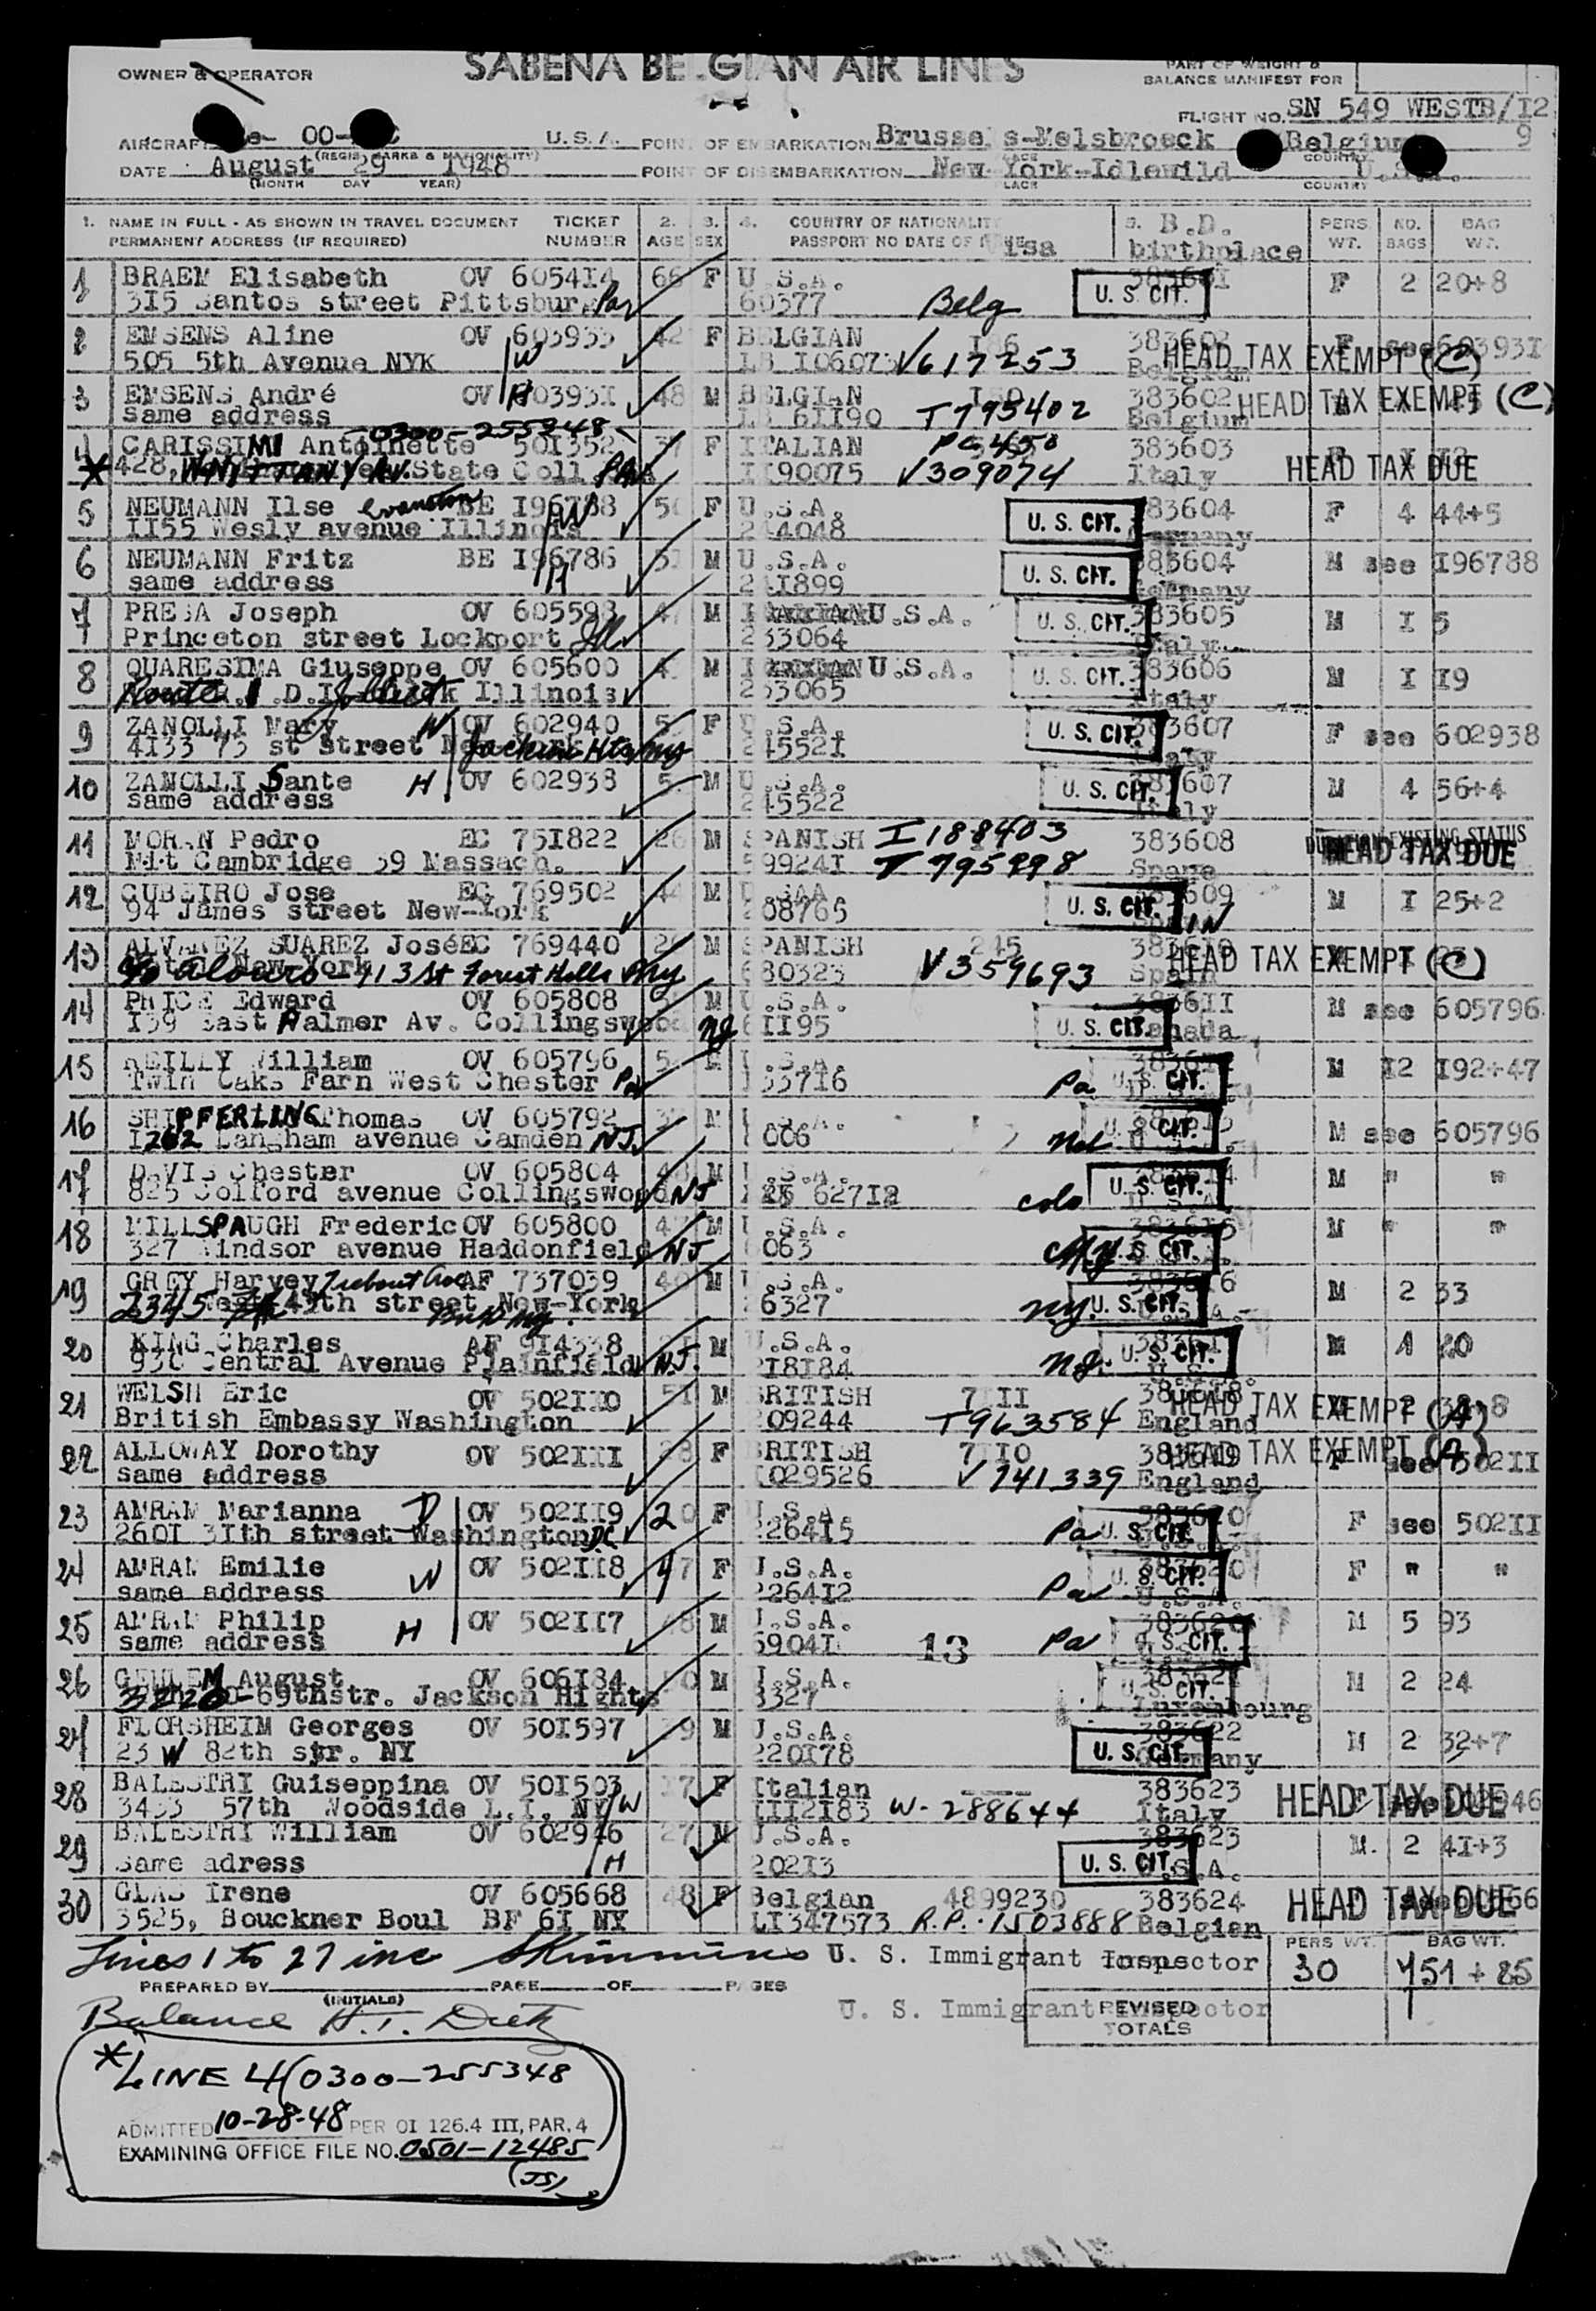 OWNER & OPERATOR
SABENA BELGIAN AIR LINES
PART OF WEIGHT &
BALANCE MANIFEST FOR
FLIGHT NO. SN 549 WESTB/I2
AIRCRAFT 00- U.S.A. POINT OF EMBARKATION Brussels-Melsbroeck Belgium 9
(REGIS. MARKS & NATIONALITY) PLACE COUNTRY
DATE August 29 1948 POINT OF DISEMBARKATION New York-Idlewild U.S.A.
(MONTH DAY YEAR) PLACE COUNTRY
1. NAME IN FULL - AS SHOWN IN TRAVEL DOCUMENT TICKET 2. 3. 4. COUNTRY OF NATIONALITY 5. B.D. PERS NO. BAG
PERMANENT ADDRESS (IF REQUIRED) NUMBER AGE SEX PASSPORT NO DATE OF ISSUE visa birthplace WT. BAGS WT.
1 BRAEM Elisabeth OV 605414 66 F U.S.A. 383601 U. S. CIT. F 2 20+8
3I5 Santos street Pittsbur Pa 60377 Belg
2 EMSENS Aline OV 603933 42 F BELGIAN I86 383602 F see 603931
505 5th Avenue NYK W LB I06073 V617253 Belgium HEAD TAX EXEMPT (C)
3 EMSENS André OV 603931 H 48 M BELGIAN 383602 HEAD TAX EXEMPT (C)
same address LB 6II90 T795402 Belgium
0300-255348
4 CARISSIMI Antoinette 50I352 F ITALIAN PC 450 383603
* 428, W NITTANY AV. State Coll PA II90075 V309074 Italy HEAD TAX DUE
5 NEUMANN Ilse Evanston BE I96788 F U.S.A. 383604 F 4 44+5
II55 Wesly avenue Illinois W 244048 U. S. CIT. Germany
6 NEUMANN Fritz BE I96786 M U.S.A. 383604 M see I96788
same address H 2AI899 U. S. CIT. Germany
7 PRESA Joseph OV 605598 M U.S.A. 383605 M I 5
Princeton street Lockport Ill 233064 U. S. CIT. Italy
8 QUARESIMA Giuseppe OV 605600 M U.S.A. 383606 M I I9
Route 1 Illinois 233065 U. S. CIT. Italy
9 ZANOLLI Mary W OV 602940 F U.S.A. 383607 F see 602938
4I33 73 st Street Jackson Hts NY 24552I U. S. CIT. Italy
10 ZANOLLI Sante H OV 602938 M U.S.A. 383607 M 4 56+4
same address 245522 U. S. CIT. Italy
11 MORAN Pedro EC 75I822 26 M SPANISH I188403 383608
Mit Cambridge 39 Massach. 59924I T 795998 HEAD TAX DUE
12 CUBEIRO Jose EC 769502 44 M U.S.A. 383609 M I 25+2
94 James street New-York 208765 U. S. CIT.
13 ALVAREZ SUAREZ José EC 769440 M SPANISH 245
c/o Alvaro 71 3 St Forest Hills NY 680323 V359693 Spain HEAD TAX EXEMPT (C)
14 PRICE Edward OV 605808 M U.S.A. 3836II M see 605796
I39 East Palmer Av. Collingswood NJ 6II95 U. S. CIT. Canada
15 REILLY William OV 605796 M U.S.A. M I2 I92+47
Twin Oaks Farn West Chester Pa 53716 Pa U. S. CIT.
16 SHIPFERLING Thomas OV 605792 M U.S.A. M see 605796
I262 Langham avenue Camden NJ 006 U. S. CIT.
17 DAVIS Chester OV 605804 48 M U.S.A. M " "
825 Collford avenue Collingswood NJ 62712 colo U. S. CIT.
18 MILLSPAUGH Frederic OV 605800 M U.S.A. M " "
327 Windsor avenue Haddonfield NJ 063 NY U. S. CIT.
19 GREY Harvey AF 737039 40 M U.S.A. M 2 33
2345 49th street New-York 6327 NY. U. S. CIT.
20 KING Charles AF 914338 M U.S.A. M 1 20
930 Central Avenue Plainfield NJ. 218184 NJ. U. S. CIT.
21 WELSH Eric OV 502II0 51 M BRITISH 7 II 383618
British Embassy Washington 209244 T963584 England HEAD TAX EXEMPT (A)
22 ALLOWAY Dorothy OV 502III 28 F BRITISH 7 I0 383619
same address I029526 V141339 England HEAD TAX EXEMPT (A)
23 AMRAM Marianna D OV 502II9 20 F U.S.A. 383620 F see 502II
260I 3Ith street Washington DC 2264I5 Pa U. S. CIT.
24 AMRAM Emilie W OV 502II8 47 F U.S.A. 383620 F " "
same address 2264I2 Pa U. S. CIT. U.S.A.
25 AMRAM Philip H OV 502II7 48 M U.S.A. 383620 M 5 93
same address 5904I 13 Pa U. S. CIT.
26 August OV 606I84 M U.S.A. 38362I M 2 24
3220-69thstr. Jackson Hights 3327 U. S. CIT. Luxembourg
27 FLORSHEIM Georges OV 50I597 39 M U.S.A. 383622 M 2 32+7
23 W 82th str. NY 220I78 U. S. CIT. Germany
28 BALESTRI Guiseppina OV 50I503 F Italian 383623
3433 57th Woodside L.I. NY W III2I83 W-288644 Italy HEAD TAX DUE
29 BALESTRI William OV 602946 27 M U.S.A. 383623 M. 2 4I+3
same adress H 202I3 U. S. CIT. U.S.A.
30 GLAS Irene OV 605668 48 F Belgian 4899230 383624
3525, Bouckner Boul BF 6I NY LI347573 R.P. 1503888 Belgian HEAD TAX DUE
Lines 1 to 27 inc U. S. Immigrant Inspector PERS WT. BAG WT.
PREPARED BY PAGE OF PAGES 30 451 + 85
(INITIALS)
Balance H.T. Dietz U. S. Immigrant Inspector REVISED
TOTALS
* LINE 4 (0300-255348
ADMITTED 10-28-48 PER OI 126.4 III, PAR. 4
EXAMINING OFFICE FILE NO. 0501-12485
(JS)